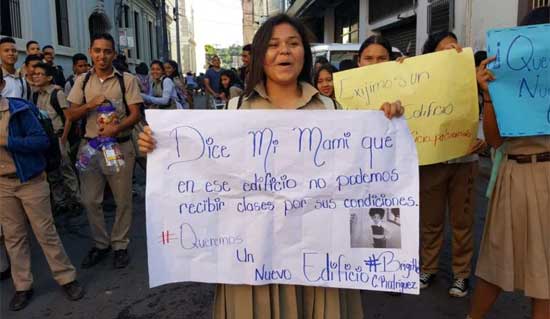 Dice Mi Mami que
en ese edificio no podemos
recibir clases por sus condiciones.
#Queremos
Un
Nuevo Edificio
#Brigitte
C. Rodriguez
Exijimos un
Edificio
¡Quer
Nu